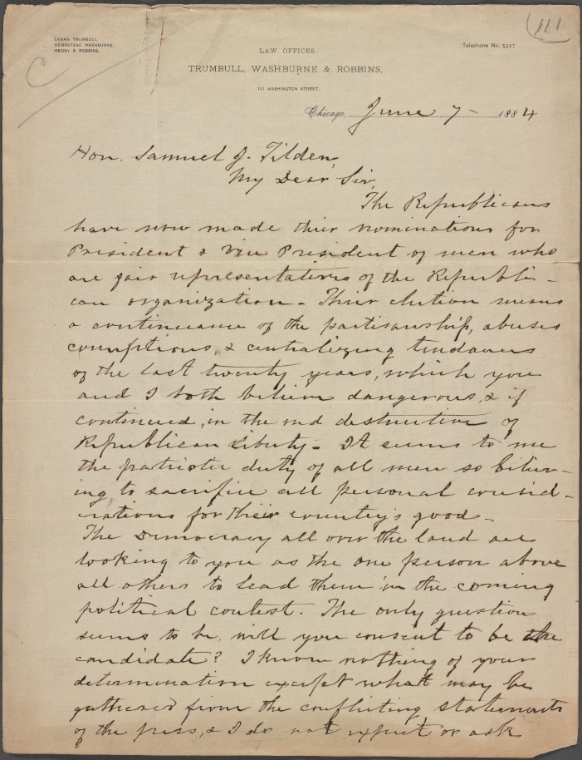 111
LYMAN TRUMBULL,
HEMPSTEAD WASHBURNE,
HENRY S. ROBBINS.
Telephone No. 5217
C
LAW OFFICES
TRUMBULL, WASHBURNE & ROBBINS,
111 WASHINGTON STREET.
Chicago, June 7 - 1884
Hon. Samuel J. Tilden,
My Dear Sir,
The Republicans
have now made their nominations for
President & Vice President of men who
are fair representatives of the Republi-
can organization - Their election means
a continuance of the partisanship, abuses
corruptions, & centralizing tendances
of the last twenty years, which you
and I both believe dangerous, & if
continued, in the end destructive of
Republican Liberty - It seems to me
the patriotic duty of all men so believ-
ing to sacrifice all personal consid-
erations for their country's good -
The Democracy all over the land are
looking to you as the one person above
all others to lead them in the coming
political contest. The only question
seems to be, will you consent to be the
candidate? I know nothing of your
determination except what may be
gathered from the conflicting statements
of the press, & I do not expect or ask